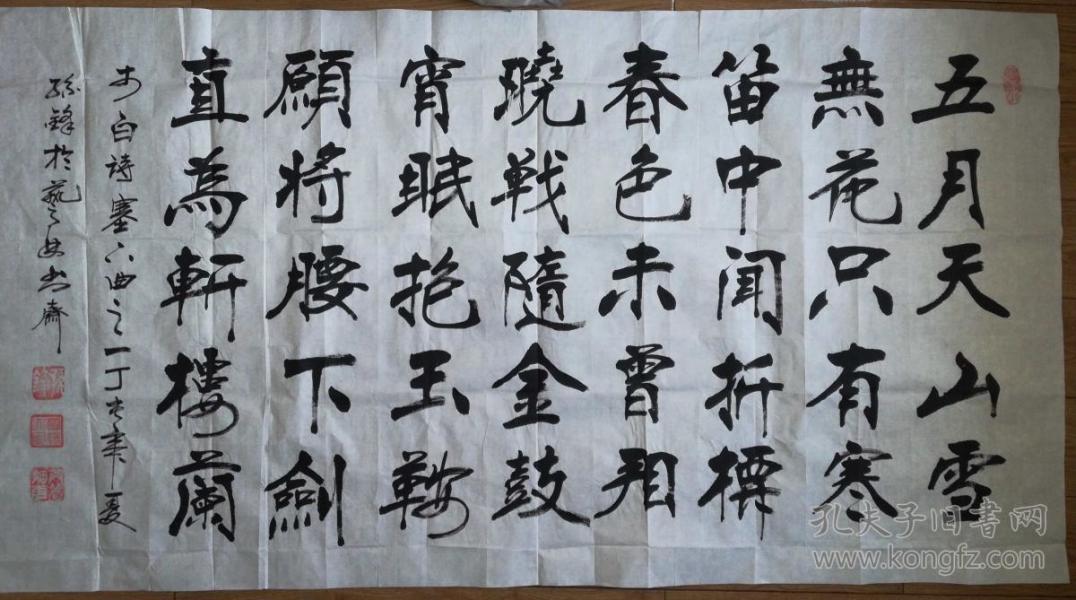 五月天山雪
無花只有寒
笛中闻折柳
春色未曾看
曉戦隨金鼓
宵眠抱玉鞍
願将腰下劍
直為斬樓蘭
李白詩塞下曲之一丁酉年夏
孫鋒於藝書齋
孔夫子旧書网
www.kongfz.com